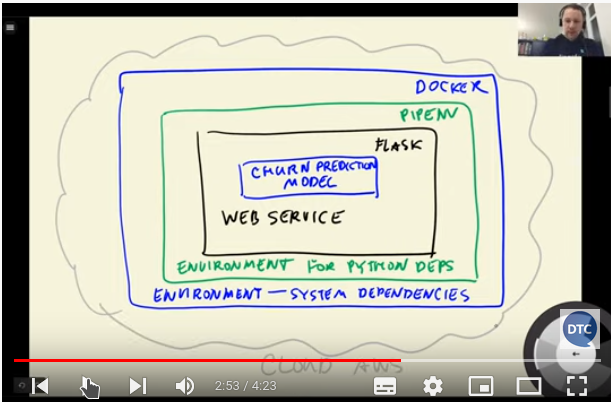 DOCKER
PIPENV
FLASK
CHURN PREDICTION
MODEL
WEB SERVICE
ENVIRONMENT FOR PYTHON DEPS
ENVIRONMENT — SYSTEM DEPENDENCIES
DTC
CLOUD AWS
2:53 / 4:23